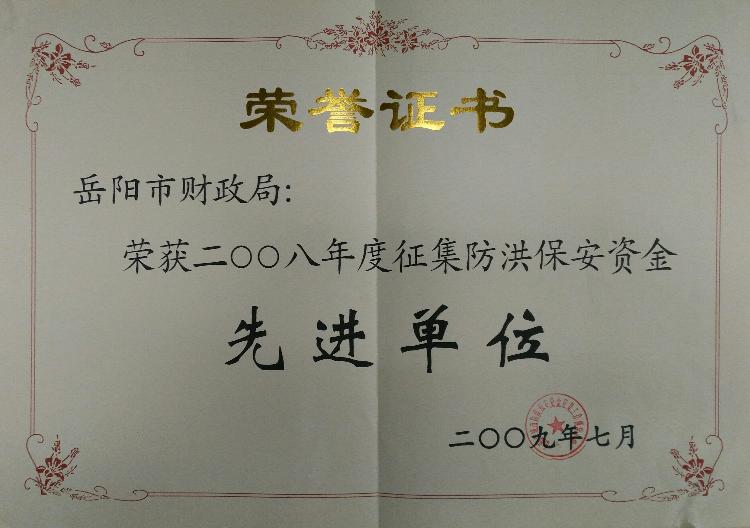 荣誉证书
岳阳市财政局:
荣获二〇〇八年度征集防洪保安资金
先进单位
二〇〇九年七月